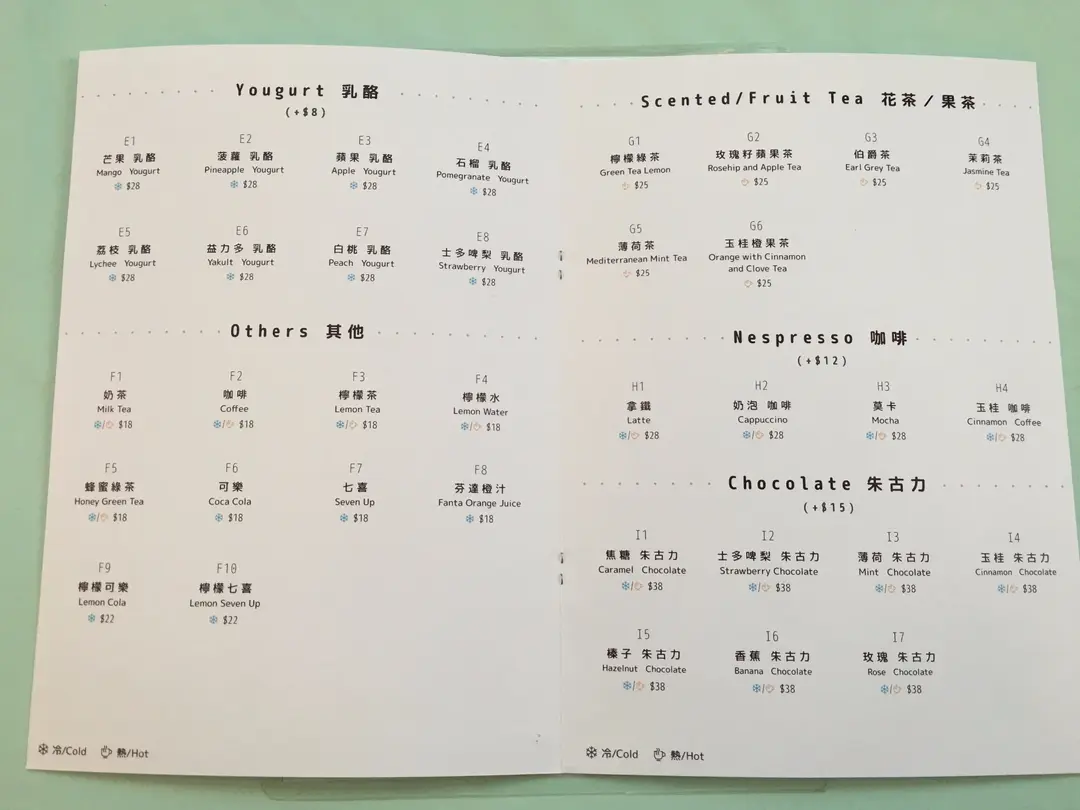 Yougurt 乳酪
(+$8)
E1
芒果 乳酪
Mango Yougurt
$28
E2
菠蘿 乳酪
Pineapple Yougurt
$28
E3
蘋果 乳酪
Apple Yougurt
$28
E4
石榴 乳酪
Pomegranate Yougurt
$28
E5
荔枝 乳酪
Lychee Yougurt
$28
E6
益力多 乳酪
Yakult Yougurt
$28
E7
白桃 乳酪
Peach Yougurt
$28
E8
士多啤梨 乳酪
Strawberry Yougurt
$28
Others 其他
F1
奶茶
Milk Tea
/ $18
F2
咖啡
Coffee
/ $18
F3
檸檬茶
Lemon Tea
/ $18
F4
檸檬水
Lemon Water
/ $18
F5
蜂蜜綠茶
Honey Green Tea
/ $18
F6
可樂
Coca Cola
$18
F7
七喜
Seven Up
$18
F8
芬達橙汁
Fanta Orange Juice
$18
F9
檸檬可樂
Lemon Cola
$22
F10
檸檬七喜
Lemon Seven Up
$22
冷/Cold 熱/Hot
Scented/Fruit Tea 花茶/果茶
G1
檸檬綠茶
Green Tea Lemon
$25
G2
玫瑰籽蘋果茶
Rosehip and Apple Tea
$25
G3
伯爵茶
Earl Grey Tea
$25
G4
茉莉茶
Jasmine Tea
$25
G5
薄荷茶
Mediterranean Mint Tea
$25
G6
玉桂橙果茶
Orange with Cinnamon
and Clove Tea
$25
Nespresso 咖啡
(+$12)
H1
拿鐵
Latte
/ $28
H2
奶泡 咖啡
Cappuccino
/ $28
H3
莫卡
Mocha
/ $28
H4
玉桂 咖啡
Cinnamon Coffee
/ $28
Chocolate 朱古力
(+$15)
I1
焦糖 朱古力
Caramel Chocolate
/ $38
I2
士多啤梨 朱古力
Strawberry Chocolate
/ $38
I3
薄荷 朱古力
Mint Chocolate
/ $38
I4
玉桂 朱古力
Cinnamon Chocolate
/ $38
I5
榛子 朱古力
Hazelnut Chocolate
/ $38
I6
香蕉 朱古力
Banana Chocolate
/ $38
I7
玫瑰 朱古力
Rose Chocolate
/ $38
冷/Cold 熱/Hot